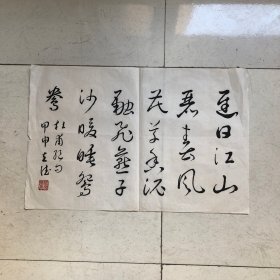 迟日江山
丽春风
花草香泥
融飞燕子
沙暖睡鸳
鸯
杜甫绝句
甲申